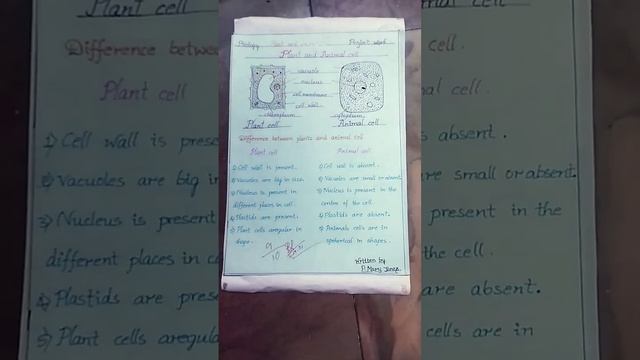 Biology
Project work
Plant and Animal cell
vacuole
nucleus
cell membrane
cell wall
chloroplasm
cytoplasm
Plant cell
Animal cell
Difference between plants and animal cell
Plant cell
Animal cell
1) Cell wall is present.
2) Vacuoles are big in size.
3) Nucleus is present in
different places in cell.
4) Plastids are present.
5) Plant cells aregular in
shape.
1) Cell wall is absent.
2) Vacuoles are small or absent.
3) Nucleus is present in the
centre of the cell.
4) Plastids are absent.
5) Animals cells are in
spherical in shapes.
9
10
Written by
P. Mary
Plant cell
Difference betwee
Plant cell
1) Cell wall is prese
2) Vacuoles are big in
3) Nucleus is present
different places in c
4) Plastids are prese
5) Plant cells aregula
mal cell
cell.
mal cell
s absent.
re small or absent.
present in the
the cell.
are absent.
cells are in